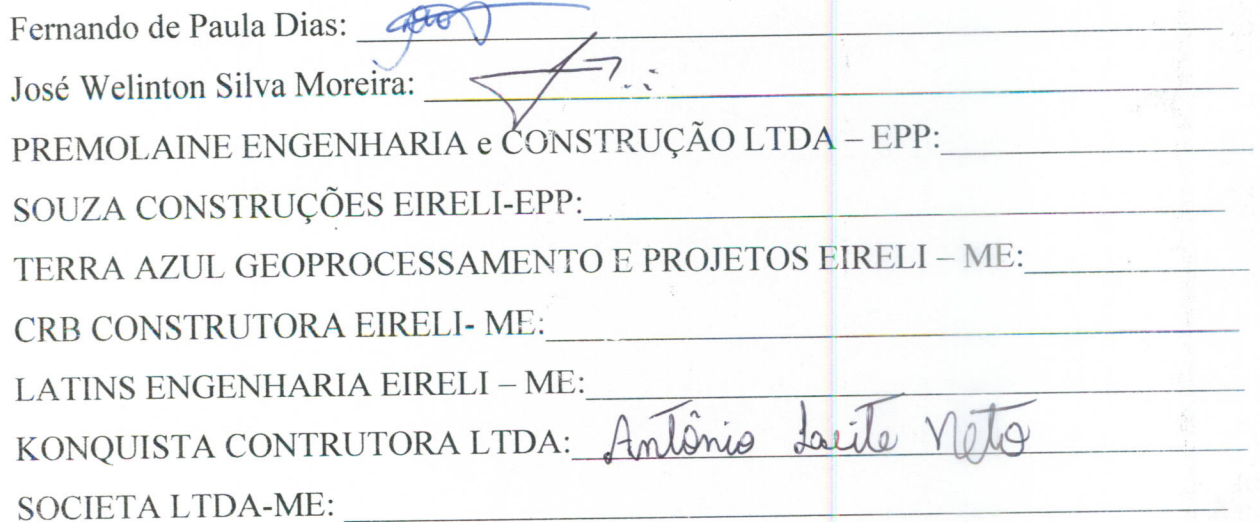 Fernando de Paula Dias:
José Welinton Silva Moreira:
PREMOLAINE ENGENHARIA e CONSTRUÇÃO LTDA – EPP:
SOUZA CONSTRUÇÕES EIRELI-EPP:
TERRA AZUL GEOPROCESSAMENTO E PROJETOS EIRELI – ME:
CRB CONSTRUTORA EIRELI- ME:
LATINS ENGENHARIA EIRELI – ME:
KONQUISTA CONTRUTORA LTDA: Antônio Neto
SOCIETA LTDA-ME: